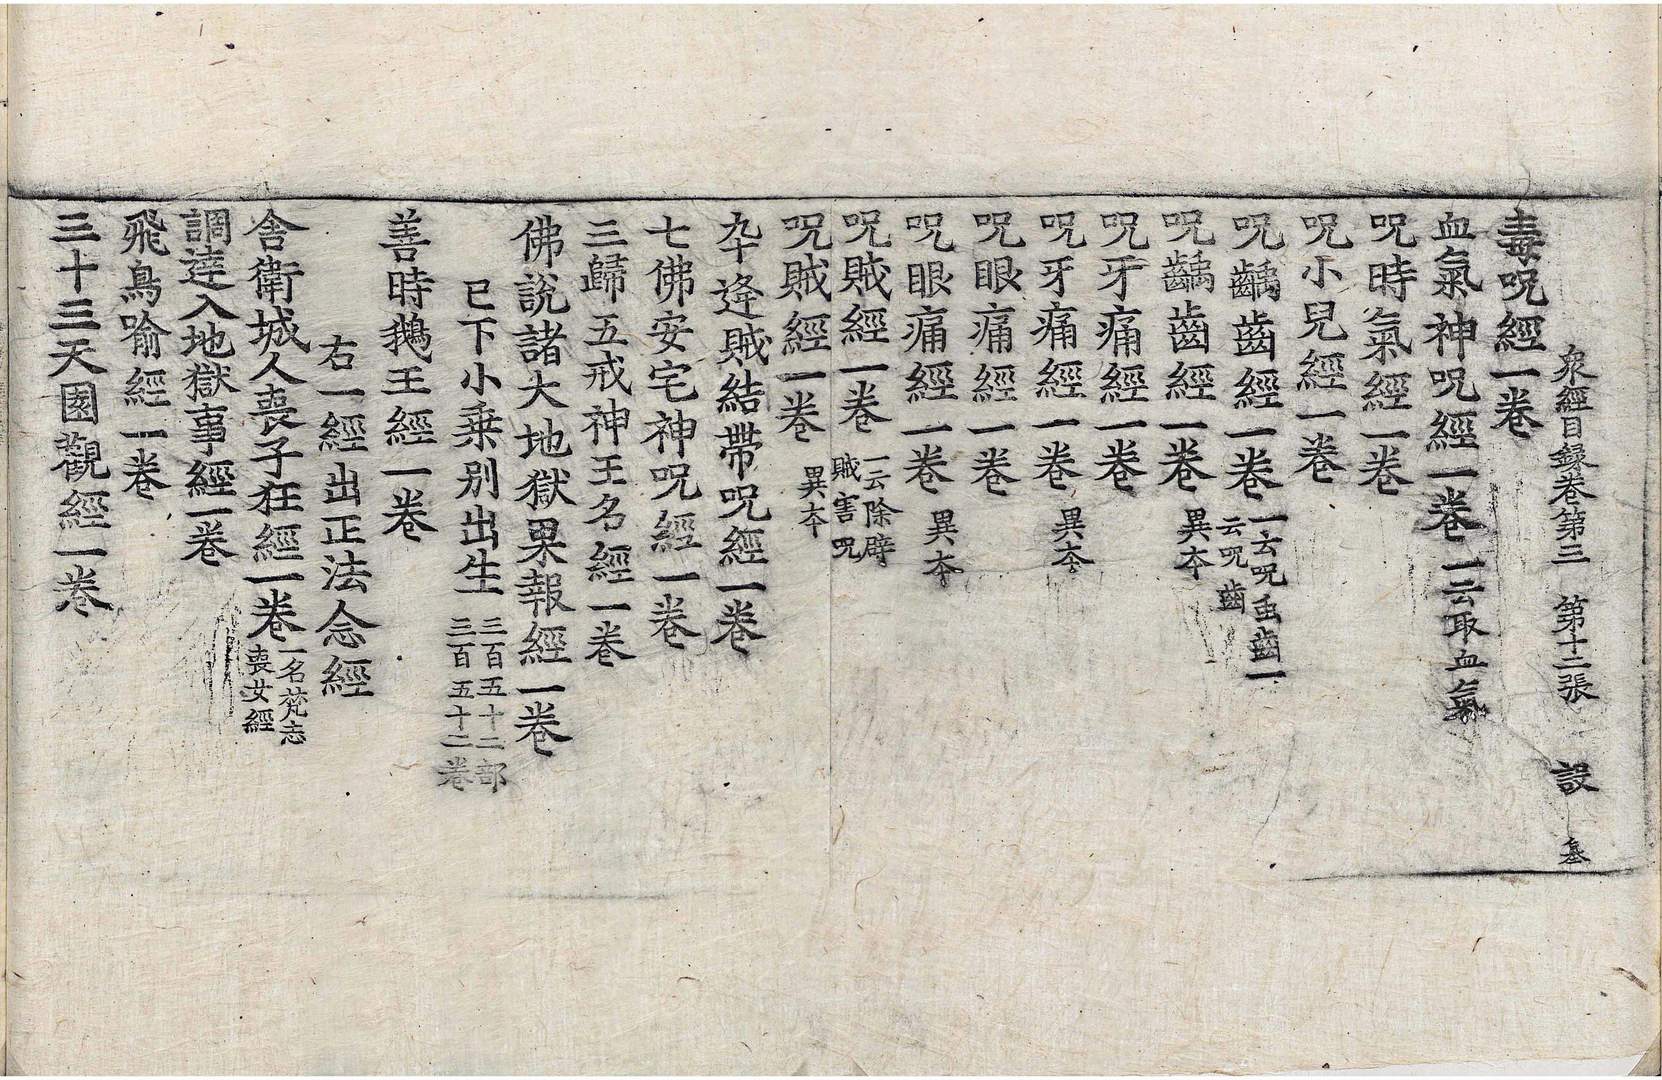 衆經目録卷第三 第十二張 設
毒呪經一卷
血氣神呪經一卷 一云取血氣
呪時氣經一卷
呪小兒經一卷
呪齲齒經一卷 一云呪虫齒一云呪齒
呪齲齒經一卷 異本
呪牙痛經一卷
呪牙痛經一卷 異本
呪眼痛經一卷
呪眼痛經一卷 異本
呪賊經一卷 一云除辟賊害呪
呪賊經一卷 異本
卒逄賊結帶呪經一卷
七佛安宅神呪經一卷
三歸五戒神王名經一卷
佛說諸大地獄果報經一卷
已下小乗别出生 三百五十二部三百五十二卷
善時鵝王經一卷
右一經出正法念經
舎衛城人喪子狂經一卷 一名梵志喪女經
調達入地獄事經一卷
飛鳥喻經一卷
三十三天園觀經一卷